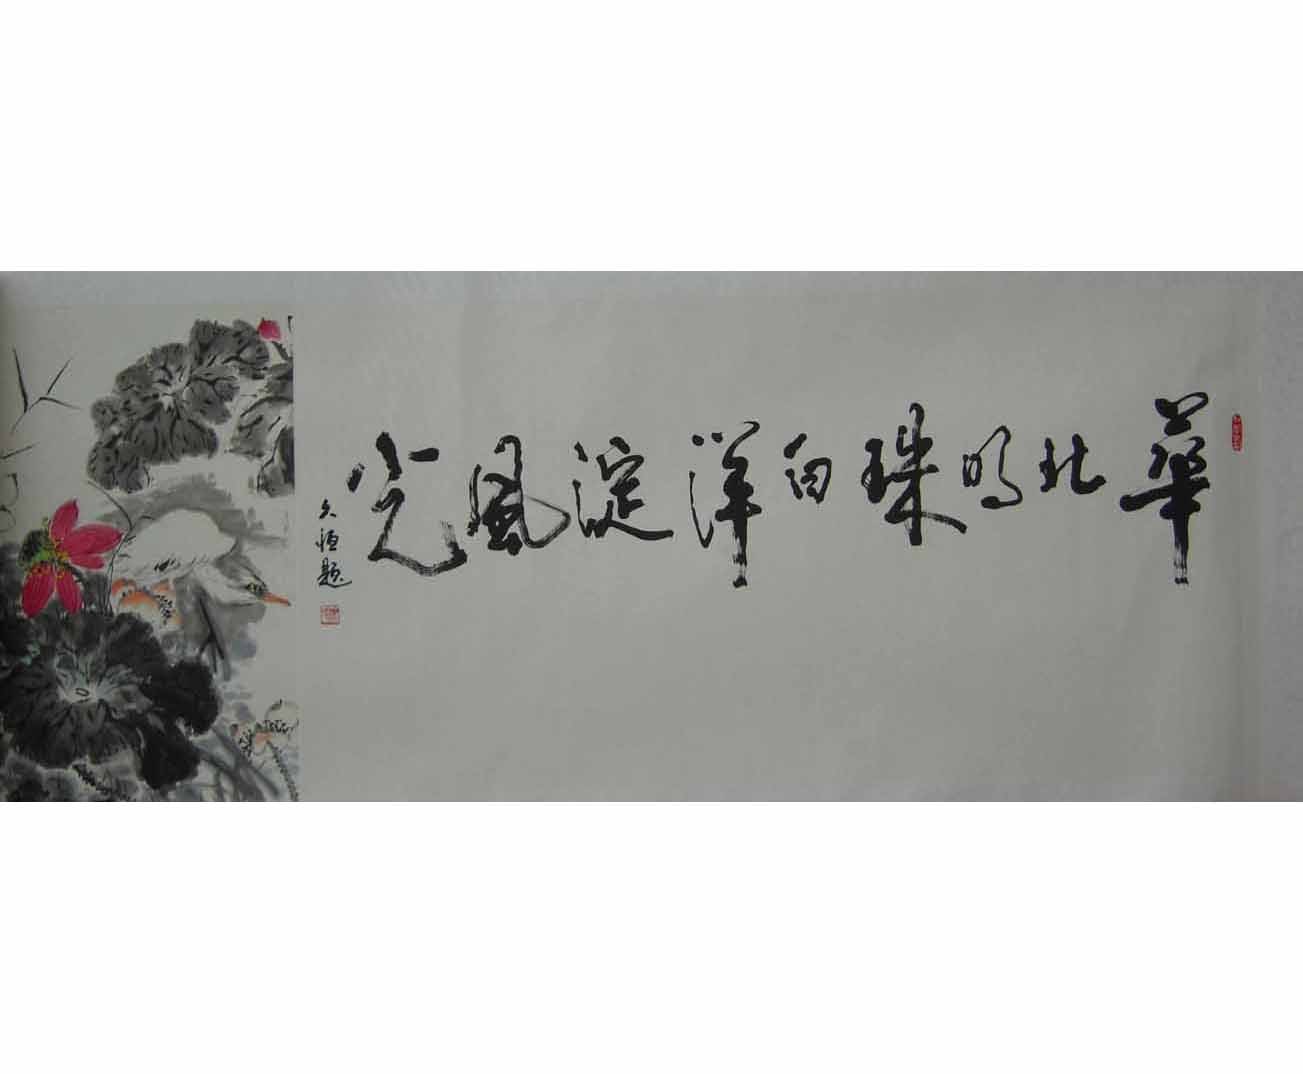 華北明珠白洋淀風光
久恒题